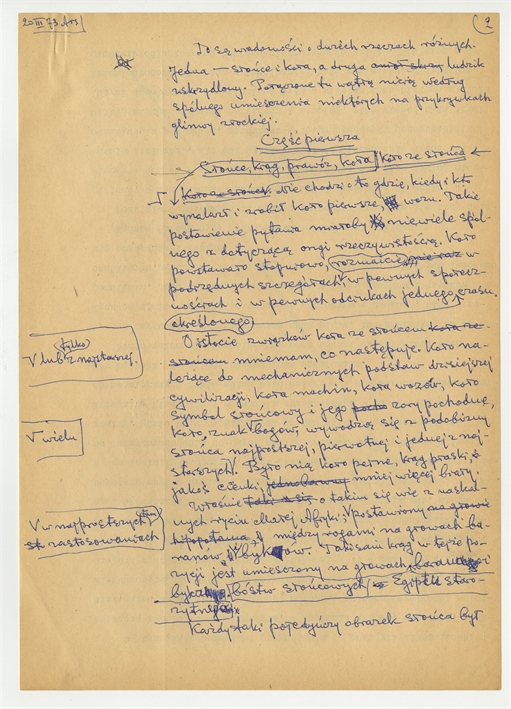 20 III 73 Ars
2
To są wiadomości o dwóch rzeczach różnych.
Jedna — słońce i koła, a druga ludzik
uskrzydlony. Połączone tu wątłą nicią według
spólnego umieszczenia niektórych na przykrywkach
glinwy złockiej.
Część pierwsza
Słońce, krąg, prawóz, koła Koło ze słońca
Koło ze słońca. Nie chodzi o to gdzie, kiedy i kto
wynalazł i zrobił koło pierwsze, wozu. Takie
postawienie pytania miałoby niewiele spól-
nego z dotyczącą ongi rzeczywistością. Koło
powstawało stopniowo, rozmaicie, nieraz w
podrzędnych szczegółach, w pewnych społecz-
nościach i w pewnych odcinkach jednego czasu.
określonego
O istocie związków koła ze słońcem koło ze
słońcem mniemam, co następuje. Koło na-
leżące do mechanicznych podstaw dzisiejszej
cywilizacji, koła machin, koła wozów, koło
symbol słońcowy i jego pochodne,
koło, znak bogów, wywodzą się z podobizny
słońca najprostszej, pierwotnej i jednej z naj-
starszych. Było nią koło pełne, krąg płaski,
jakoś cienki, jednobarwny mniej więcej biały.
Właśnie taki o takim się wie z naskal-
nych rycin całej Afryki; postawiony na głowie
hippotama, między rogami na głowach ba-
ranów, byków. Takisam krąg w tejże po-
zycji jest umieszczony na głowach,
bóstw słońcowych Egiptu staro-
żytnego.
Każdy taki pojedyńczy obrazek słońca był
(tylko)
V lub z najstarszej.
V wielu
V w najprostszych
zastosowaniach